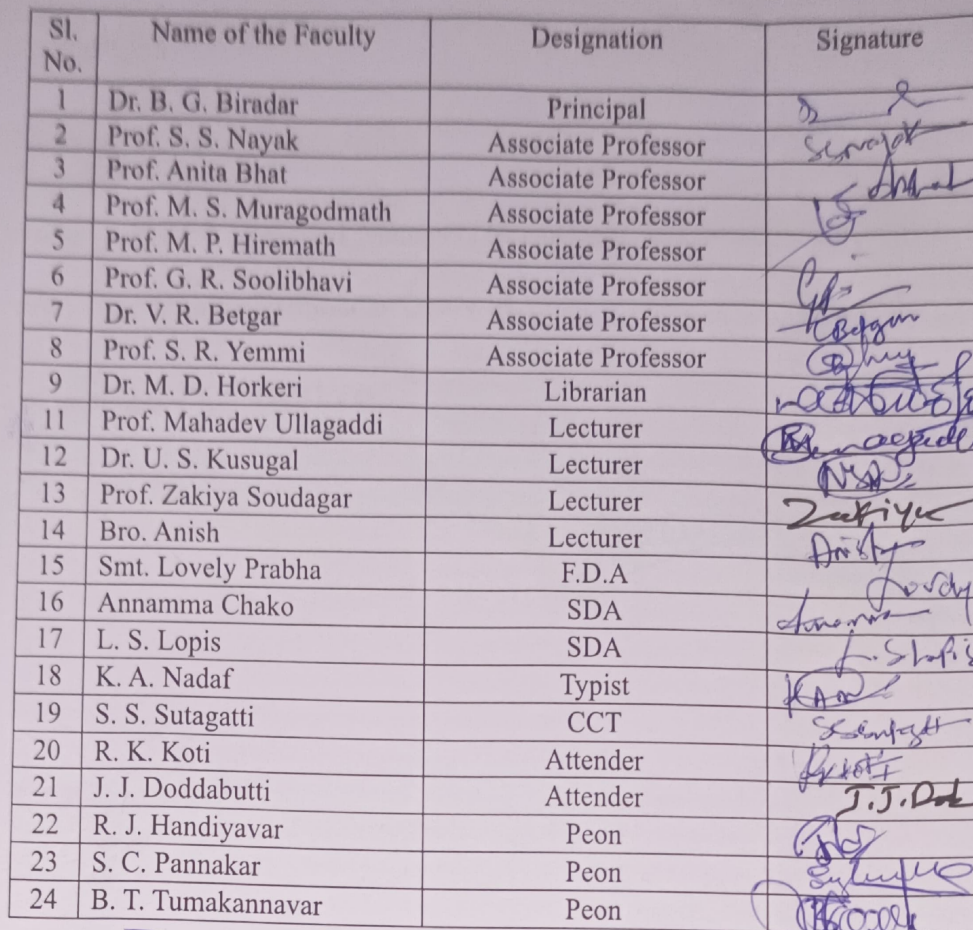 Sl. No. Name of the Faculty Designation Signature
1 Dr. B. G. Biradar Principal
2 Prof. S. S. Nayak Associate Professor
3 Prof. Anita Bhat Associate Professor
4 Prof. M. S. Muragodmath Associate Professor
5 Prof. M. P. Hiremath Associate Professor
6 Prof. G. R. Soolibhavi Associate Professor
7 Dr. V. R. Betgar Associate Professor
8 Prof. S. R. Yemmi Associate Professor
9 Dr. M. D. Horkeri Librarian
11 Prof. Mahadev Ullagaddi Lecturer
12 Dr. U. S. Kusugal Lecturer
13 Prof. Zakiya Soudagar Lecturer Zakiya
14 Bro. Anish Lecturer Anish
15 Smt. Lovely Prabha F.D.A Lovely
16 Annamma Chako SDA
17 L. S. Lopis SDA L. S Lopis
18 K. A. Nadaf Typist
19 S. S. Sutagatti CCT
20 R. K. Koti Attender
21 J. J. Doddabutti Attender J.J.Dod
22 R. J. Handiyavar Peon
23 S. C. Pannakar Peon
24 B. T. Tumakannavar Peon